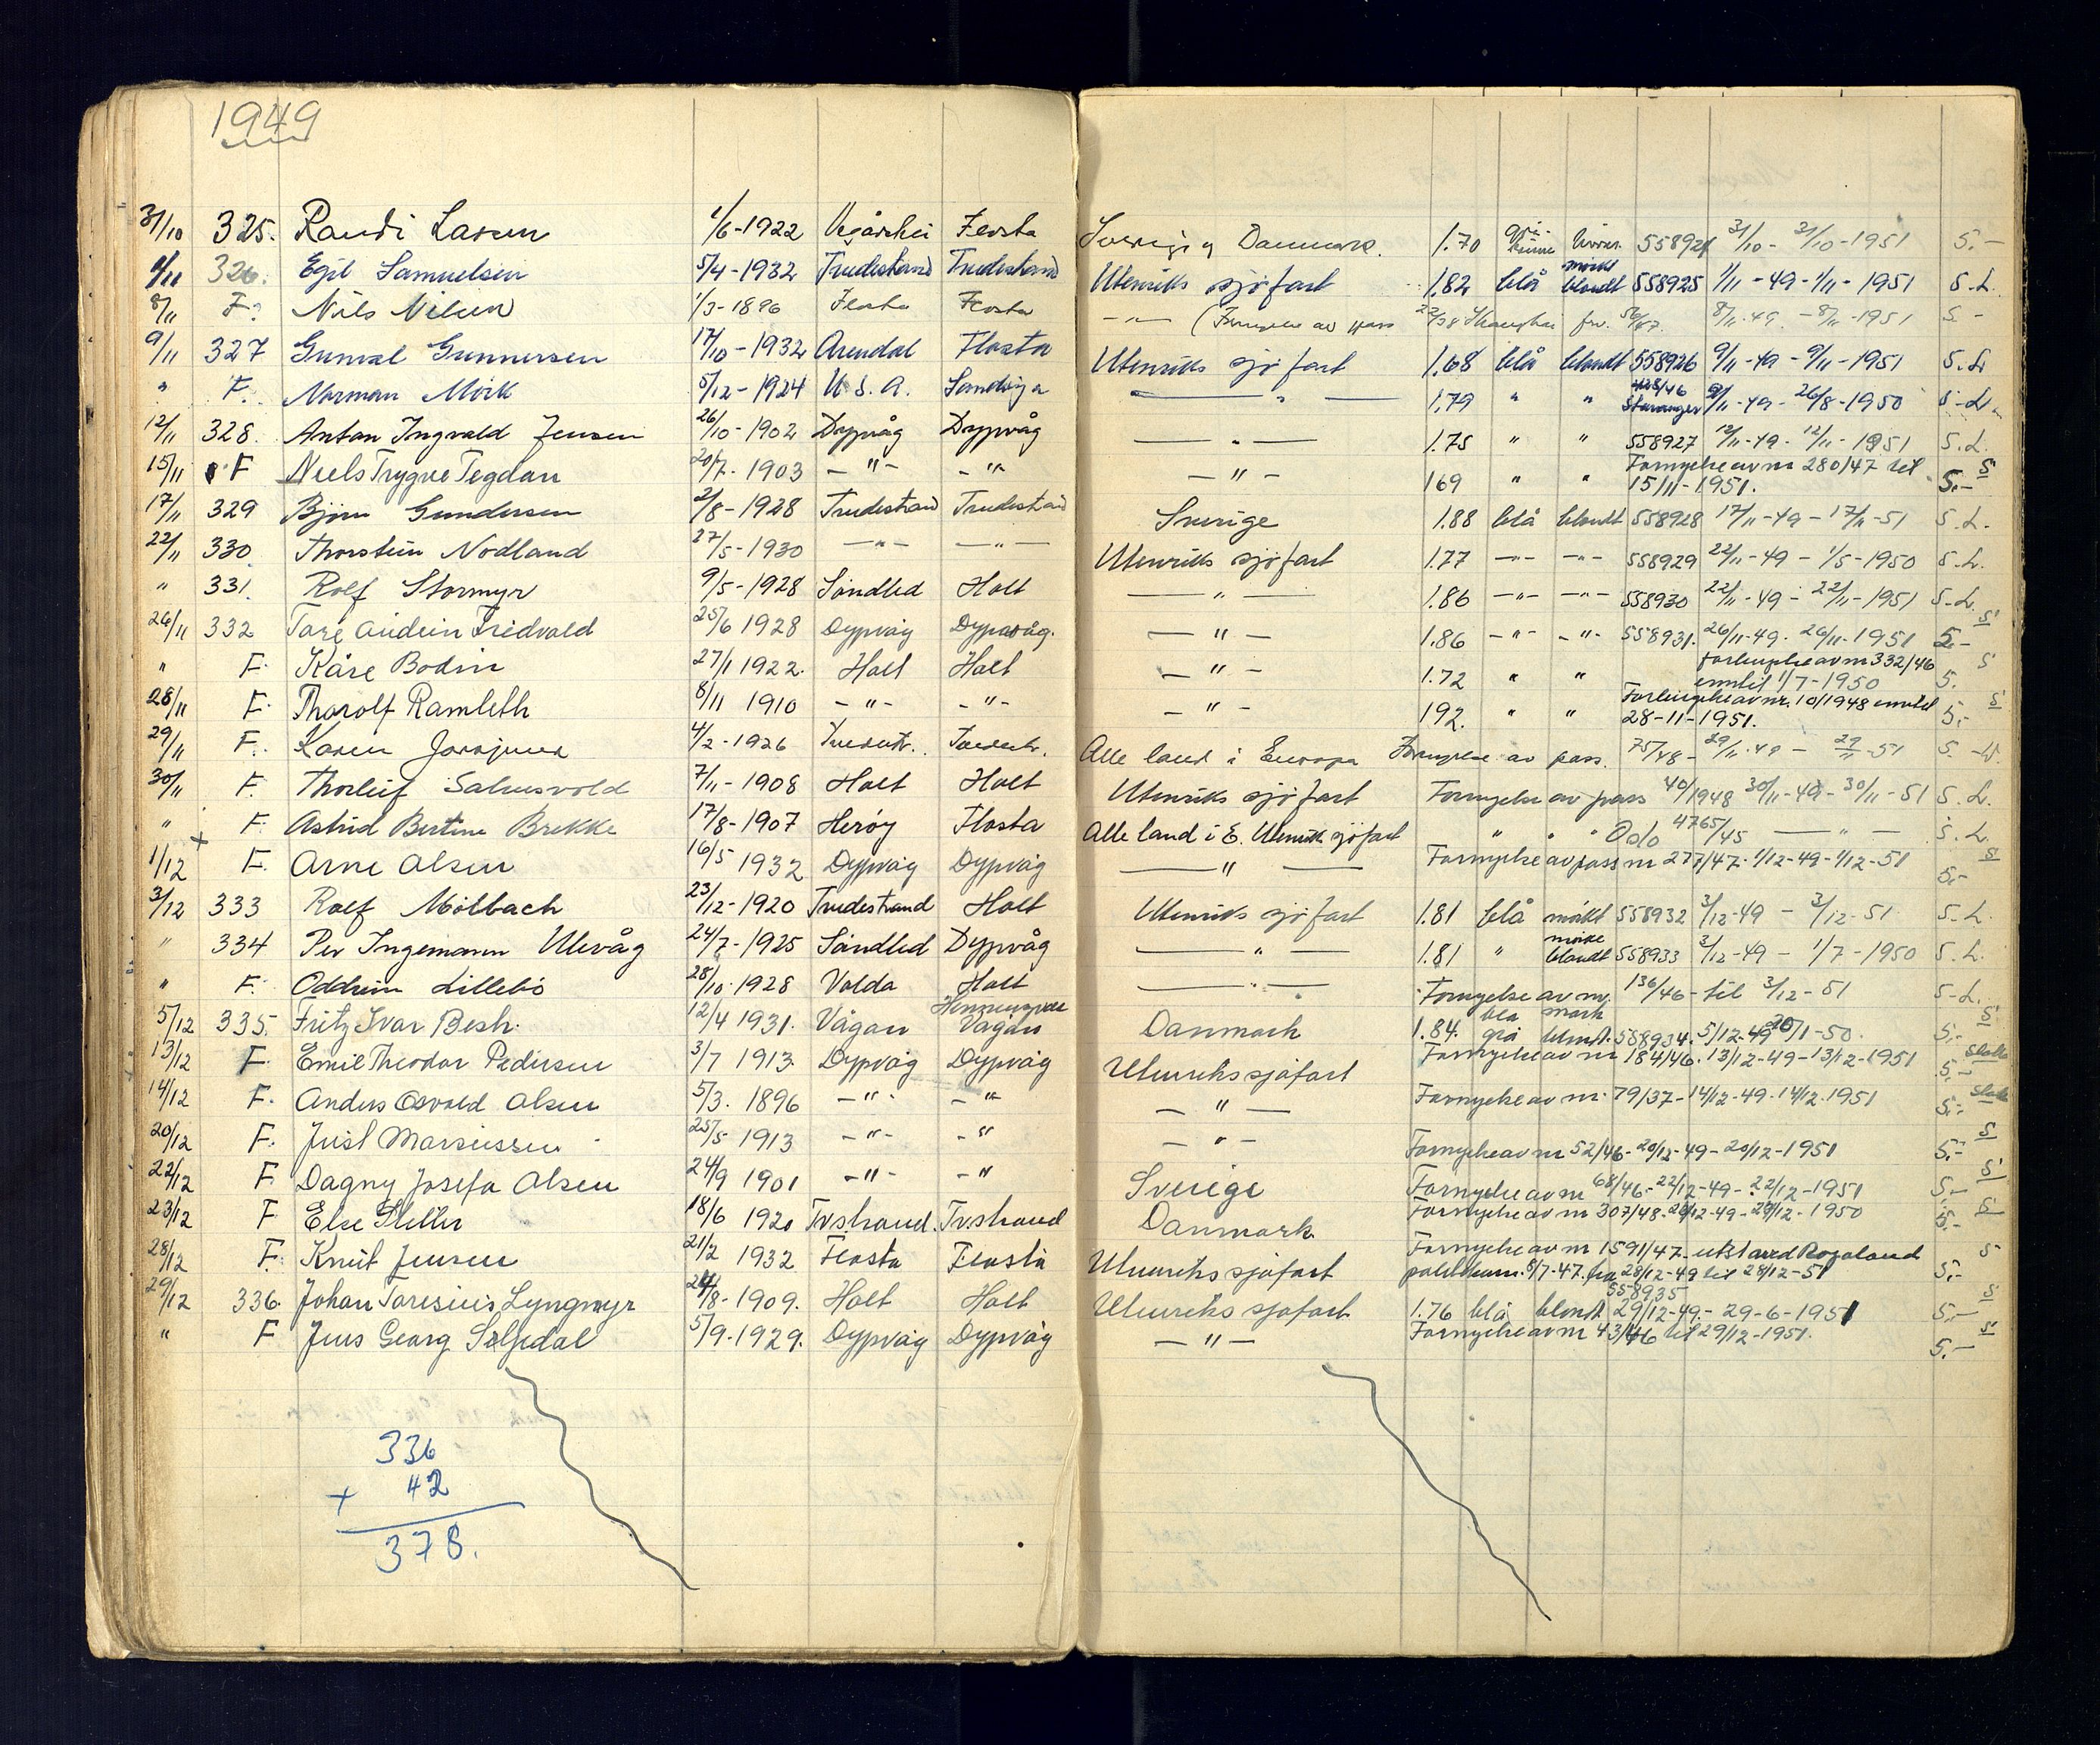 1949
31/10 325. Randi Larsen 1/6-1922 Vegårshei Flosta Sverige og Danmark. 1.70 grå-brune brun. 558924 31/10 - 31/10-1951 5.-
1/11 326. Egil Samuelsen 5/4-1932 Tvedestrand Tvedestrand Utenriks sjöfart 1.82 blå mörkt blondt 558925 1/11-49-1/11-1951 5.L.
8/11 F. Nils Nilsen 1/3-1896 Flosta Flosta -"- (Fornyelse av pass 22/38 Shanghai 8/11.49 - 8/11-1951 5.-
9/11 327 Gunval Gunnersen 17/10-1932 Arendal Flosta Utenriks sjöfart 1.68 blå blondt 558926 9/11-49-9/11-1951 5.L
" F. Norman Mörk 5/12-1924 U.S.A. " 1.79 " " Stavanger 9/11-49-26/8-1950 5.L.
12/11 328. Anton Ingvald Jensen 26/10-1902 Dypvåg Dypvåg -"- 1.75 " " 558927 12/11-49-12/11-1951 5.L.
15/11 F Niels Trygve Tegdan 20/7-1903 -"- -"- -"- 169 " " Fornyelse av nr 280/47 til 15/11-1951. 5.- S
17/11 329 Bjørn Gundersen 2/8-1928 Tvedestrand Tvedestrand Sverige 1.88 blå blondt 558928 17/11-49-17/11-51 5.L.
22/11 330 Thorstein Nodland 27/5-1930 -"- -"- Utenriks sjöfart 1.77 -"- -"- 558929 22/11-49-1/5-1950 5.L.
" 331. Rolf Stormyr 9/5-1928 Söndled Holt -"- 1.86 -"- -"- 558930 22/11-49-22/11-1951 5.L.
26/11 332 Tore Audun Fredvald 25/6 1928 Dypvåg Dypvåg. -"- 1.86 -"- -"- 558931. 26/11-49. 26/11-1951 5.- S
" F. Kåre Bodin 27/1 1922. Holt Holt -"- 1.72 " " forlengelse av nr 332/46 inntil 1/7-1950 5. S
28/11 F. Thorolf Ramleth 8/11 1910 -"- -"- -"- 192. " " Forlengelse av nr. 10/1948 inntil 28-11-1951. 5.- S
29/11 F. Karen 4/2-1926 Tvedestr. Tvedestr. Alle land i Europa Fornyelse av pass. 75/48-29/11.49-29/11-51 5.
30/11 F. Thorleif Salvesvold 7/11-1908 Holt Holt Utenriks sjöfart Fornyelse av pass 40/1948 30/11-49-30/11-51 5.L.
" F. Astrid Bertine Brekke 17/8-1907 Herøy Flosta Alle land i E. Utenriks sjöfart " " " Oslo 4765/45 -"- 5.L.
1/12 F. Arne Olsen 16/5 1932 Dypvåg Dypvåg -"- Fornyelse av pass nr 277/47-1/12-49-1/12-51 5.- S
3/12 333 Rolf Mölbach 23/12-1920 Tvedestrand Holt Utenriks sjöfart 1.81 blå mörkt 558932 3/12-49-3/12-51 5.L.
" 334 Per Ingemann Ulevåg 24/7-1925 Söndled Dypvåg -"- 1.81 " mörke blondt 558933 3/12-49-1/7-1950 5.L.
" F. Oddvin Lillebö 28/10-1928 Volda Holt -"- Fornyelse av nr. 136/46-til 3/12-51 5.L.
5/12 335. Fritz Ivar Besh. 12/4 1931. Vågan Henningsvær Vågan Danmark 1.84. blå grå mørk blond. 558934. 5/12-49 20/1-50. 5.- S
13/12 F. Emil Theodor Pedersen 3/7 1913. Dypvåg Dypvåg Utenriks sjøfart Fornyelse av nr 184/46. 13/12-49-13/12-1951 5.-
14/12 F. Anders Osvald Olsen 5/3. 1896 -"- -"- -"- Fornyelse av nr. 79/37-14/12-49-14/12.1951 5.-
20/12 F. Just Marsiussen 25/5 1913 -"- -"- -"- Fornyelse av nr 52/46-20/12-49-20/12-1951 5.- S
22/12 F. Dagny Josefa Olsen 24/9 1901 -"- -"- Sverige Fornyelse av nr 68/46-22/12-49-22/12-1951 5.- S
23/12 F Else 18/6 1920 Tvstrand. Tvstrand Danmark Fornyelse av nr 307/48-29/12-49-29/12-1950 5.- S
28/12 F. Knut Jensen 21/2 1932 Flosta Flosta Utenriks sjøfart Fornyelse av nr 1591/47. utst. ved Rogaland politikam. 8/7-47. fra 28/12-49 til 28/12-51 5.- S
29/12 336. Johan Taresius Lyngmyr 24/8-1909. Holt Holt Utenriks sjøfart 1.76 blå blond 558935 29/12-49-29-6-1951 5.- S
" F Jens Georg Selfsdal 5/9-1929. Dypvåg Dypvåg -"- Fornyelse av nr 43/46 til 29/12-1951. 5.- S
336
+ 42
378.